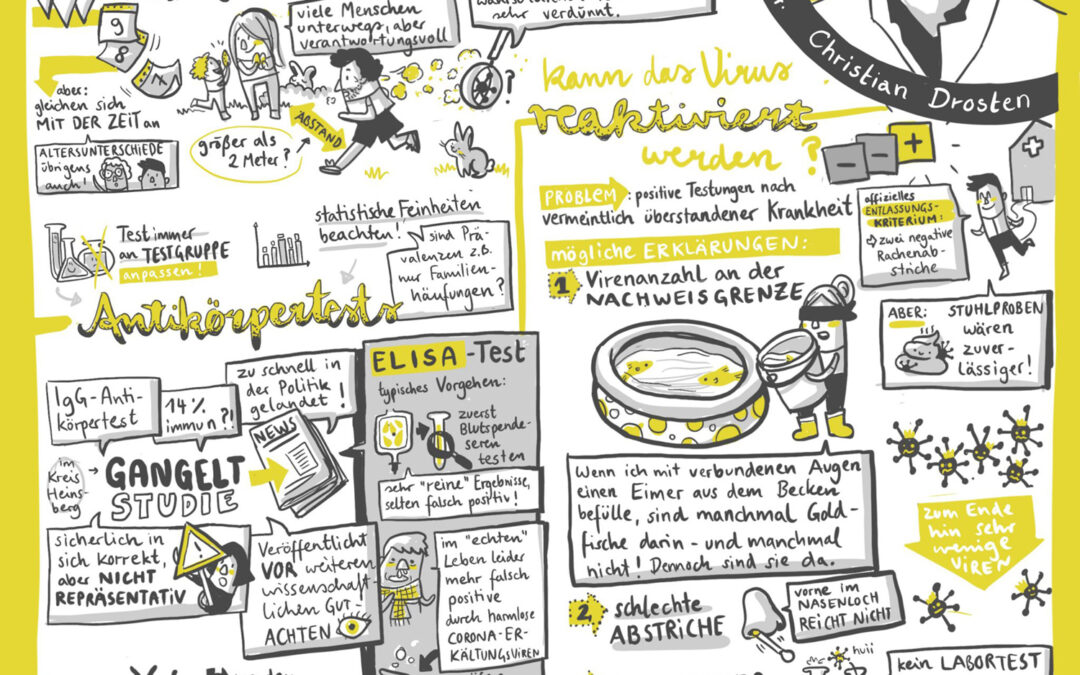 viele Menschen
unterwegs, aber
verantwortungsvoll
sehr verdünnt.
9
8
7
aber:
gleichen sich
MIT DER ZEIT an
ALTERSUNTERSCHIEDE
übrigens
auch!
größer als
2 Meter?
ABSTAND
?
Christian Drosten
kann das Virus
reaktiviert
werden?
PROBLEM: positive Testungen nach
vermeintlich überstandener Krankheit
mögliche ERKLÄRUNGEN:
1 Virenanzahl an der
NACHWEISGRENZE
- - +
offizielles
ENTLASSUNGS-
KRITERIUM:
⇨ zwei negative
Rachenab-
striche
ABER: STUHLPROBEN
wären
zuver-
lässiger!
Test immer
an TESTGRUPPE
anpassen!
statistische Feinheiten
beachten!
sind Prä-
valenzen z.B.
nur Familien-
häufungen?
Antikörpertests
IgG-Anti-
körpertest
14%
immun?!
zu schnell in
der Politik
gelandet!
NEWS
im
Kreis
Heins-
berg
GANGELT
STUDIE
sicherlich in
sich korrekt,
aber NICHT
REPRÄSENTATIV
Veröffentlicht
VOR weiteren
wissenschaft-
lichen GUT-
ACHTEN
ELISA-Test
typisches Vorgehen:
zuerst
Blutspende-
seren
testen
sehr "reine" Ergebnisse,
selten falsch positiv!
im "echten"
Leben leider
mehr falsch
positive
durch harmlose
CORONA-ER-
KÄLTUNGSVIREN
Wenn ich mit verbundenen Augen
einen Eimer aus dem Becken
befülle, sind manchmal Gold-
fische darin - und manchmal
nicht! Dennoch sind sie da.
zum Ende
hin sehr
wenige
VIREN
2 schlechte
ABSTRICHE
vorne im
NASENLOCH
REICHT NICHT
huii
kein LABORTEST